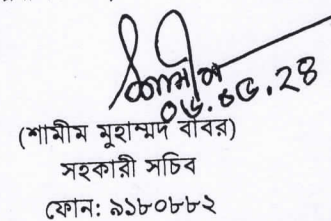 শামীম
০৬.০৬.২৪
(শামীম মুহাম্মদ বাবর)
সহকারী সচিব
ফোন: ৯১৮০৮৮২